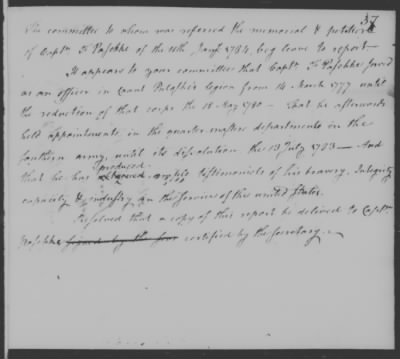 37
The committee to whom was referred the memorial & petition
of Capt. F. Paschke of the 16th Jany. 1784, beg leave to report—
It appears to your committee that Capt. F. Paschke served
as an officer in Count Pulaskis legion from 14 March 1777 until
the reduction of that corps the 18 May 1780 — That he afterwards
held appointments, in the quarter-masters departments in the
southern army, until its dissolution the 13 July 1783 — And
produced
that he has ample testimonials of his bravery, Integrity
capacity & industry in the service of the united States.
Resolved that a copy of this report be delivered to Capt.
Paschke signed by the certified by the Secretary.